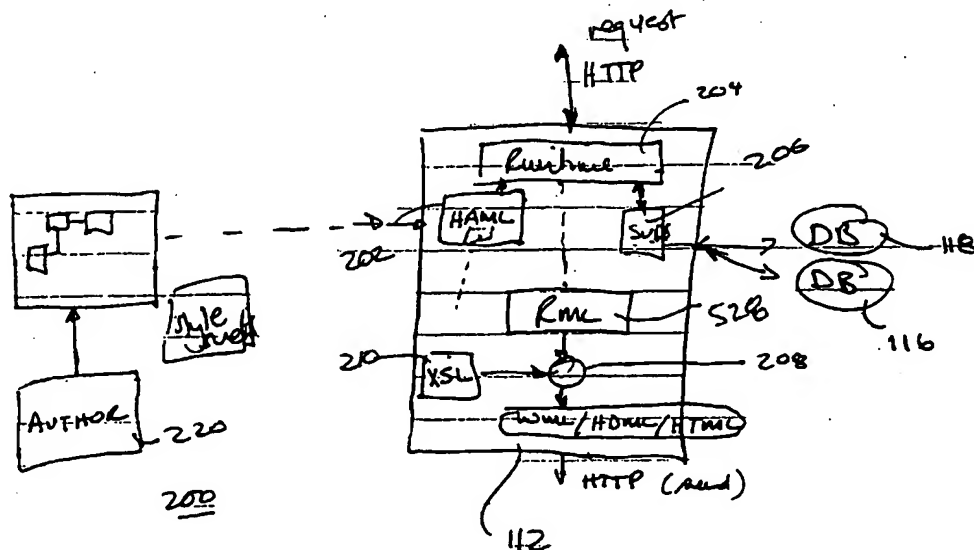 request
HTTP
204
Runtime
206
HAML
SVCS
202
DB
118
DB
RML
528
116
style sheet
210
XSL
208
AUTHOR
220
WML/HDML/HTML
HTTP (send)
200
112